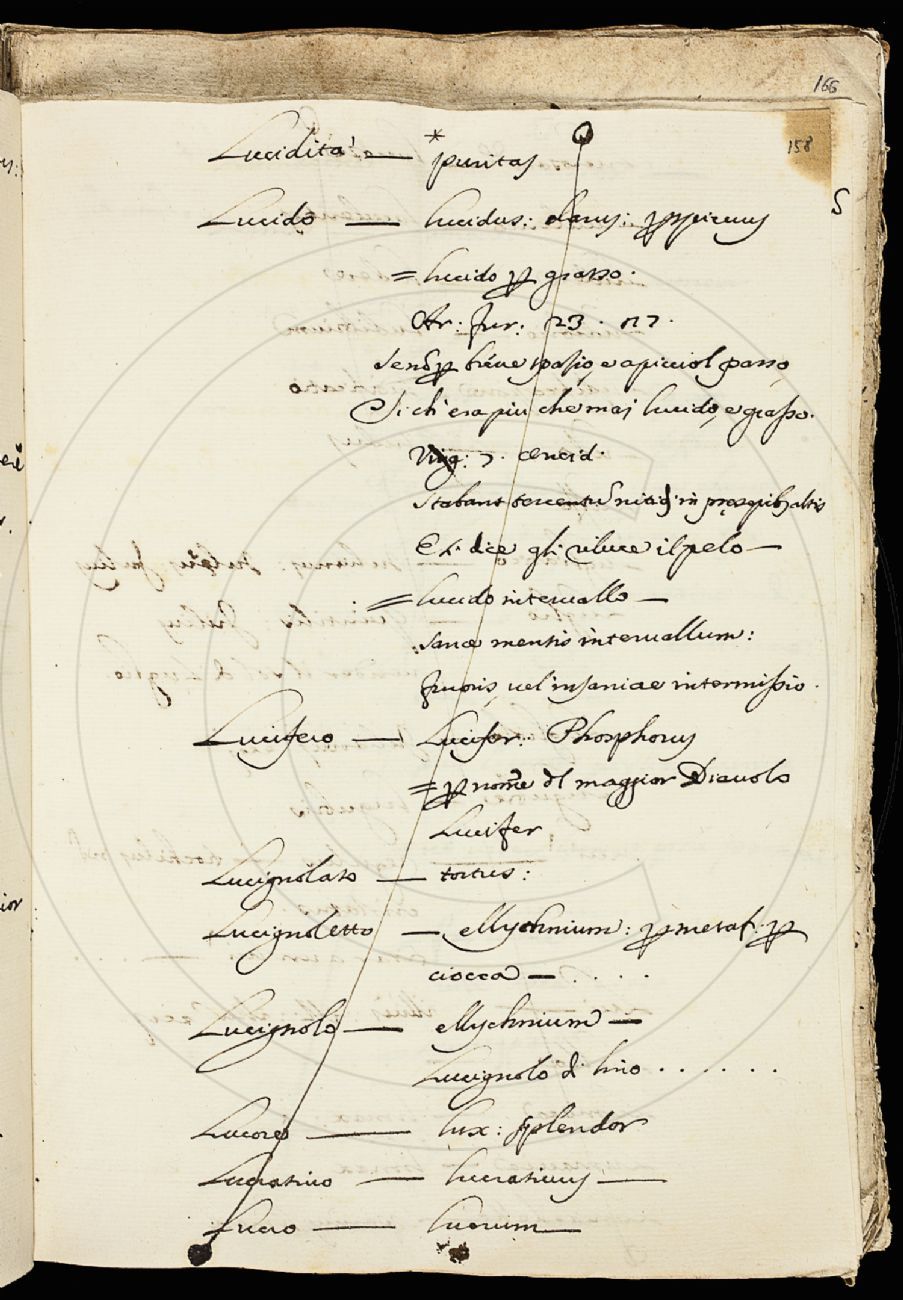 166
158
Lucidità — * puritas
S
Lucido — lucidus: clarus: perspicuus
= lucido per grasso.
Ar: fur: 23. 27.
Se non per breve spasio, e a picciol passo,
Si ch'era piu che mai lucido, e grasso.
Virg: 7. Æneid.
Stabant tercentũ nitidi in præsepibꝫ altis
E si dice gli riluce il pelo —
= lucido intervallo —
sanæ mentis intervallum:
furoris, vel insaniæ intermissio.
Lucifero — Lucifer: Phosphorus
= per nome del maggior Diavolo
Lucifer
Lucignolato — tortus:
Lucignoletto — ellychnium: per metaf: per
ciocca — . . . .
Lucignolo — ellychnium —
Lucignolo di lino . . . . . .
Lucore — lux: splendor
Lucrativo — lucrativus —
Lucro — lucrum —